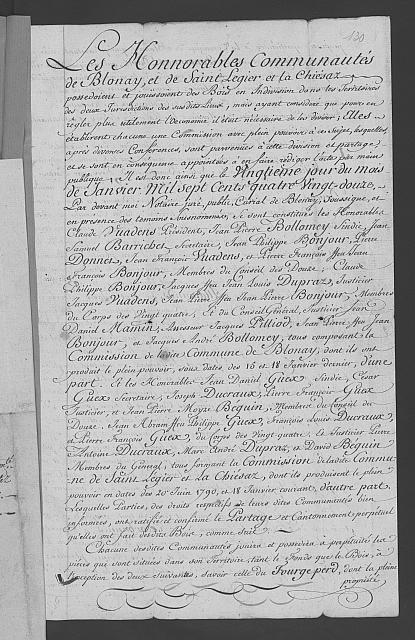 130
Les Honnorables Communautés
de Blonay, et de Saint Legier et la Chiésaz
possedoient et jouissoient des Bois en Indivision dans les Territoires
des deux Jurisdictions des susdits Lieux, mais ayant considéré que pour en
régler plus utilement l'oeconomie il étoit nécessaire de les diviser; Elles
établirent chacune une Commission avec plein pouvoir à ce sujet, lesquelles,
après diverses Conferences, sont parvenuës à cette division et partage;
et se sont en consequence appointées à en faire rédiger l'acte par main
publique. Il est donc ainsi que le Vingtieme jour du mois
de Janvier Mil sept Cents quatre Vingt-douze,
Par devant moi Notaire juré, public, Curial de Blonay, soussigné, et
en presence des temoins sousnommés, se sont constitués les Honnorables
Claude Vuadens Président, Jean Pierre Bollomey Sindic, Jean
Samuel Barrichet Secretaire, Jean Philippe Bonjour, Pierre
Donnet, Jean François Vuadens, et Pierre ffeu Jean
François Bonjour, Membres du Conseil des Douze, Claude
Philippe Bonjour, Jacques ffeu Jean Louis Dupraz, Justicier
Jacques Vuadens, Jean Pierre ffeu Jean Pierre Bonjour, Membres
du Corps des Vingt quatre, Et du Conseil Général, Justicier Jean
Daniel Mamin, Assesseur Jacques Pilliod, Jean Pierre ffeu Jean
Bonjour, et Jacques André Bollomey, tous composant la
Commission de ladite Commune de Blonay, dont ils ont
produit le plein pouvoir, sous dates, des 16 et 18 Janvier dernier, d'une
part. Et les Honnorables Jean Daniel Guex, Sindic, César
Guex Secretaire, Joseph Ducraux, Pierre François Guex
Justicier, et Jean Pierre Moyze Beguin, Membres du Conseil des
Douze, Jean Abram ffeu Philippe Guex, François Louis Ducraux,
et Pierre François Guex, du Corps des Vingt-quatre, Et Justicier Pierre
Antoine Ducraux, Marc André Dupraz, et David Beguin
Membres du Général, tous formant la Commission de ladite Commu-
ne de Saint Legier et La Chiésaz, dont ils produisent le plein
pouvoir en dates des 20e Juin 1790, et 18 Janvier courant, d'autre part.
Lesquelles Parties, des droits respectifs de leurs dites Communautés bien
informées, ont ratifié et confirmé le Partage et Cantonnement perpetuel
qu'elles ont fait desdits Bois, comme suit.
Chacune desdites Communautés jouïra et possedera à perpétuité les
pièces qui sont situées dans son Territoire, tant le Fonds que le Bois, à
l'exception des deux suivantes, savoir celle du Fourge perd, dont la pleine
propriété